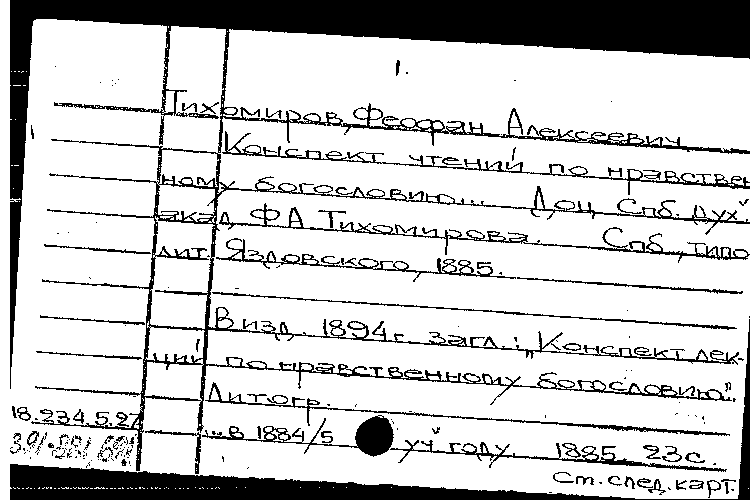 1.
Тихомиров, Феофан Алексеевич
Конспект чтений по нравствен-
ному богословию... Доц. Спб. дух.
акад. Ф.А. Тихомирова. Спб., типо-
лит. Яздовского, 1885.
В изд. 1894 г. загл.: „Конспект лек-
ций по нравственному богословию".
Литогр.
18.234.5.27
...в 1884/5 уч. году. 1885. 23 с.
См. след. карт.